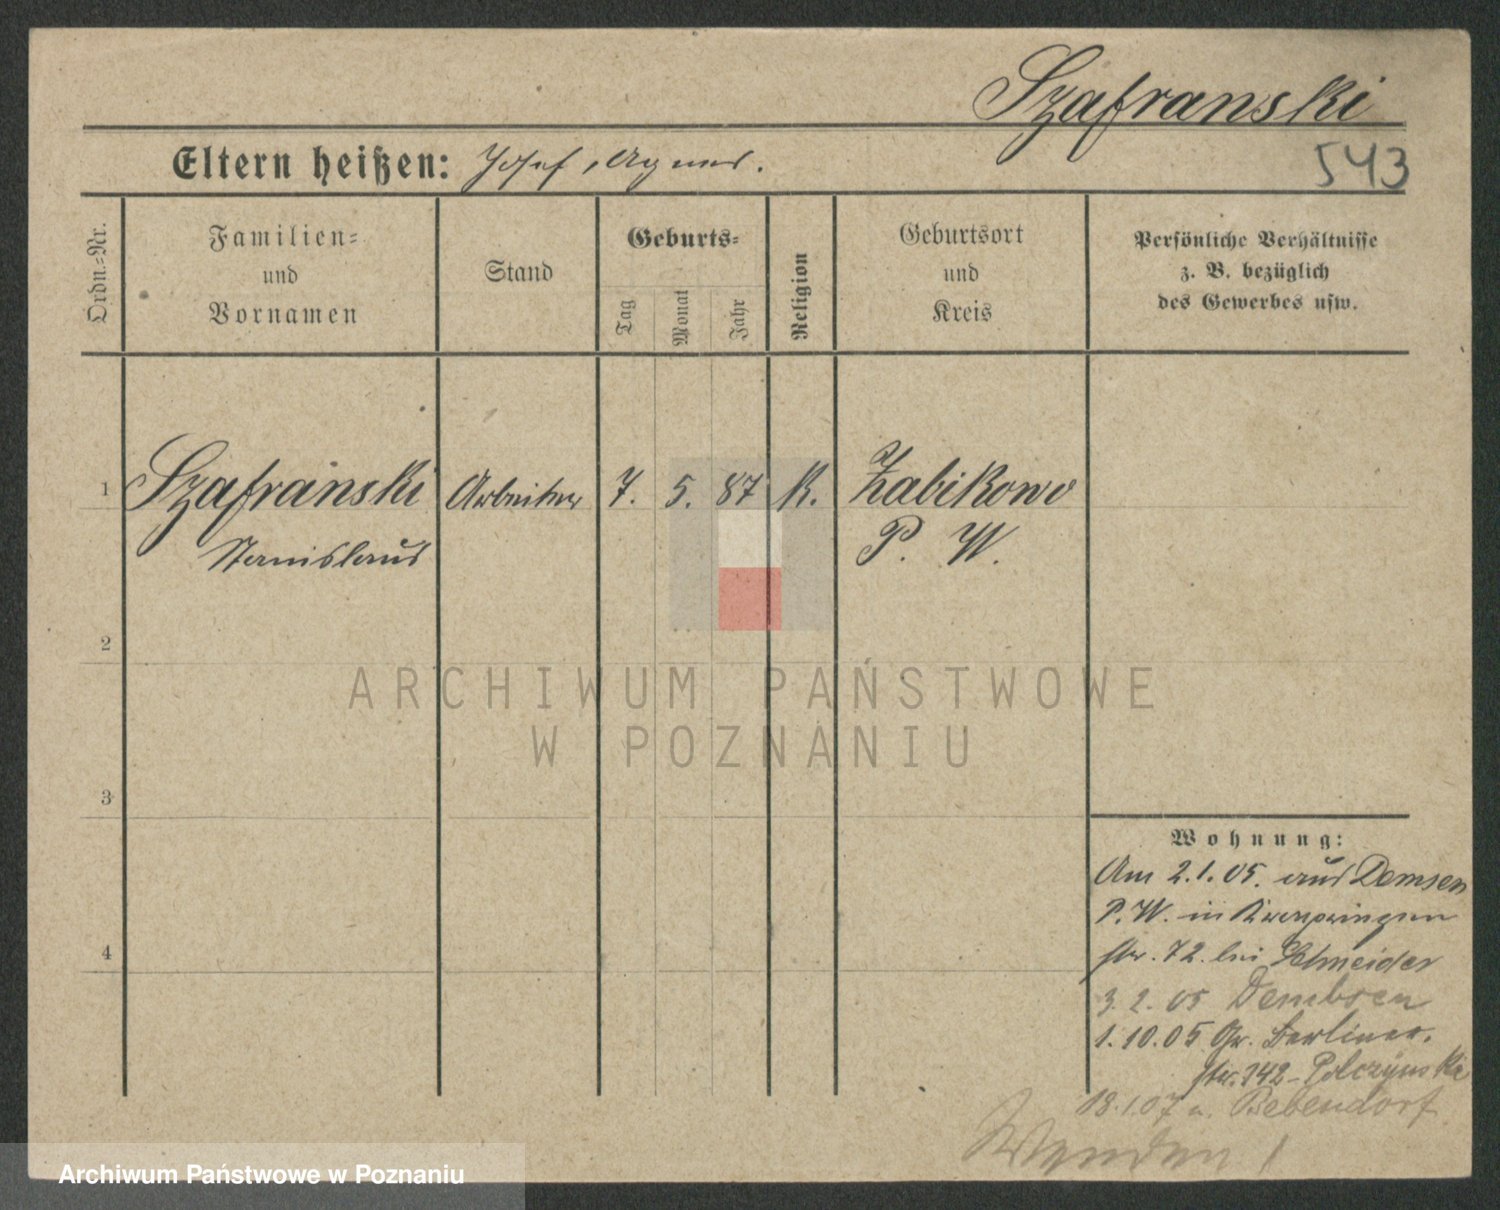 Szafranski
Eltern heißen: Josef, Agnes.
543
Ordn.-Nr.
Familien-
und
Vornamen
Stand
Geburts-
Tag
Monat
Jahr
Religion
Geburtsort
und
Kreis
Persönliche Verhältnisse
z. B. bezüglich
des Gewerbes usw.
1 Szafranski Arbeiter 7. 5. 87 K. Zabikowo
Stanislaus P. W.
2
ARCHIWUM PAŃSTWOWE
W POZNANIU
3
Wohnung:
Am 2.1.05. aus Demsen
P. W. in
str. 72. bei Schneider
3. 2. 05 Dembsen
1.10.05 Gr. Berliner-
str. 142 - Polczynski
18.1.07 n. Bebendorf
4
Wenden!
Archiwum Państwowe w Poznaniu